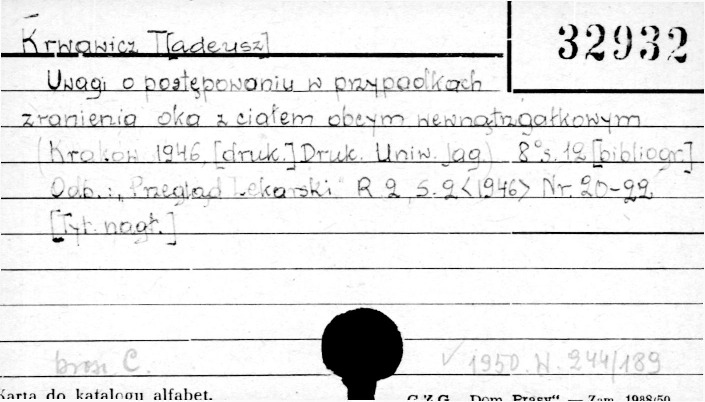 Krwawicz T[adeusz]
32932
Uwagi o postępowaniu w przypadkach
zranienia oka z ciałem obcym wewnątrzgałkowym
(Kraków 1946, [druk.] Druk. Uniw. Jag.) 8° s. 12 [bibliogr.]
Odb.: „Przegląd Lekarski" R 2, S. 2 <1946> Nr. 20-22
[Tyt. nagł.]
C.
✓ 1950. W. 244/189
Karta do katalogu alfabet.
C.Z.G. „Dom Prasy“ — Zam. 1988/50